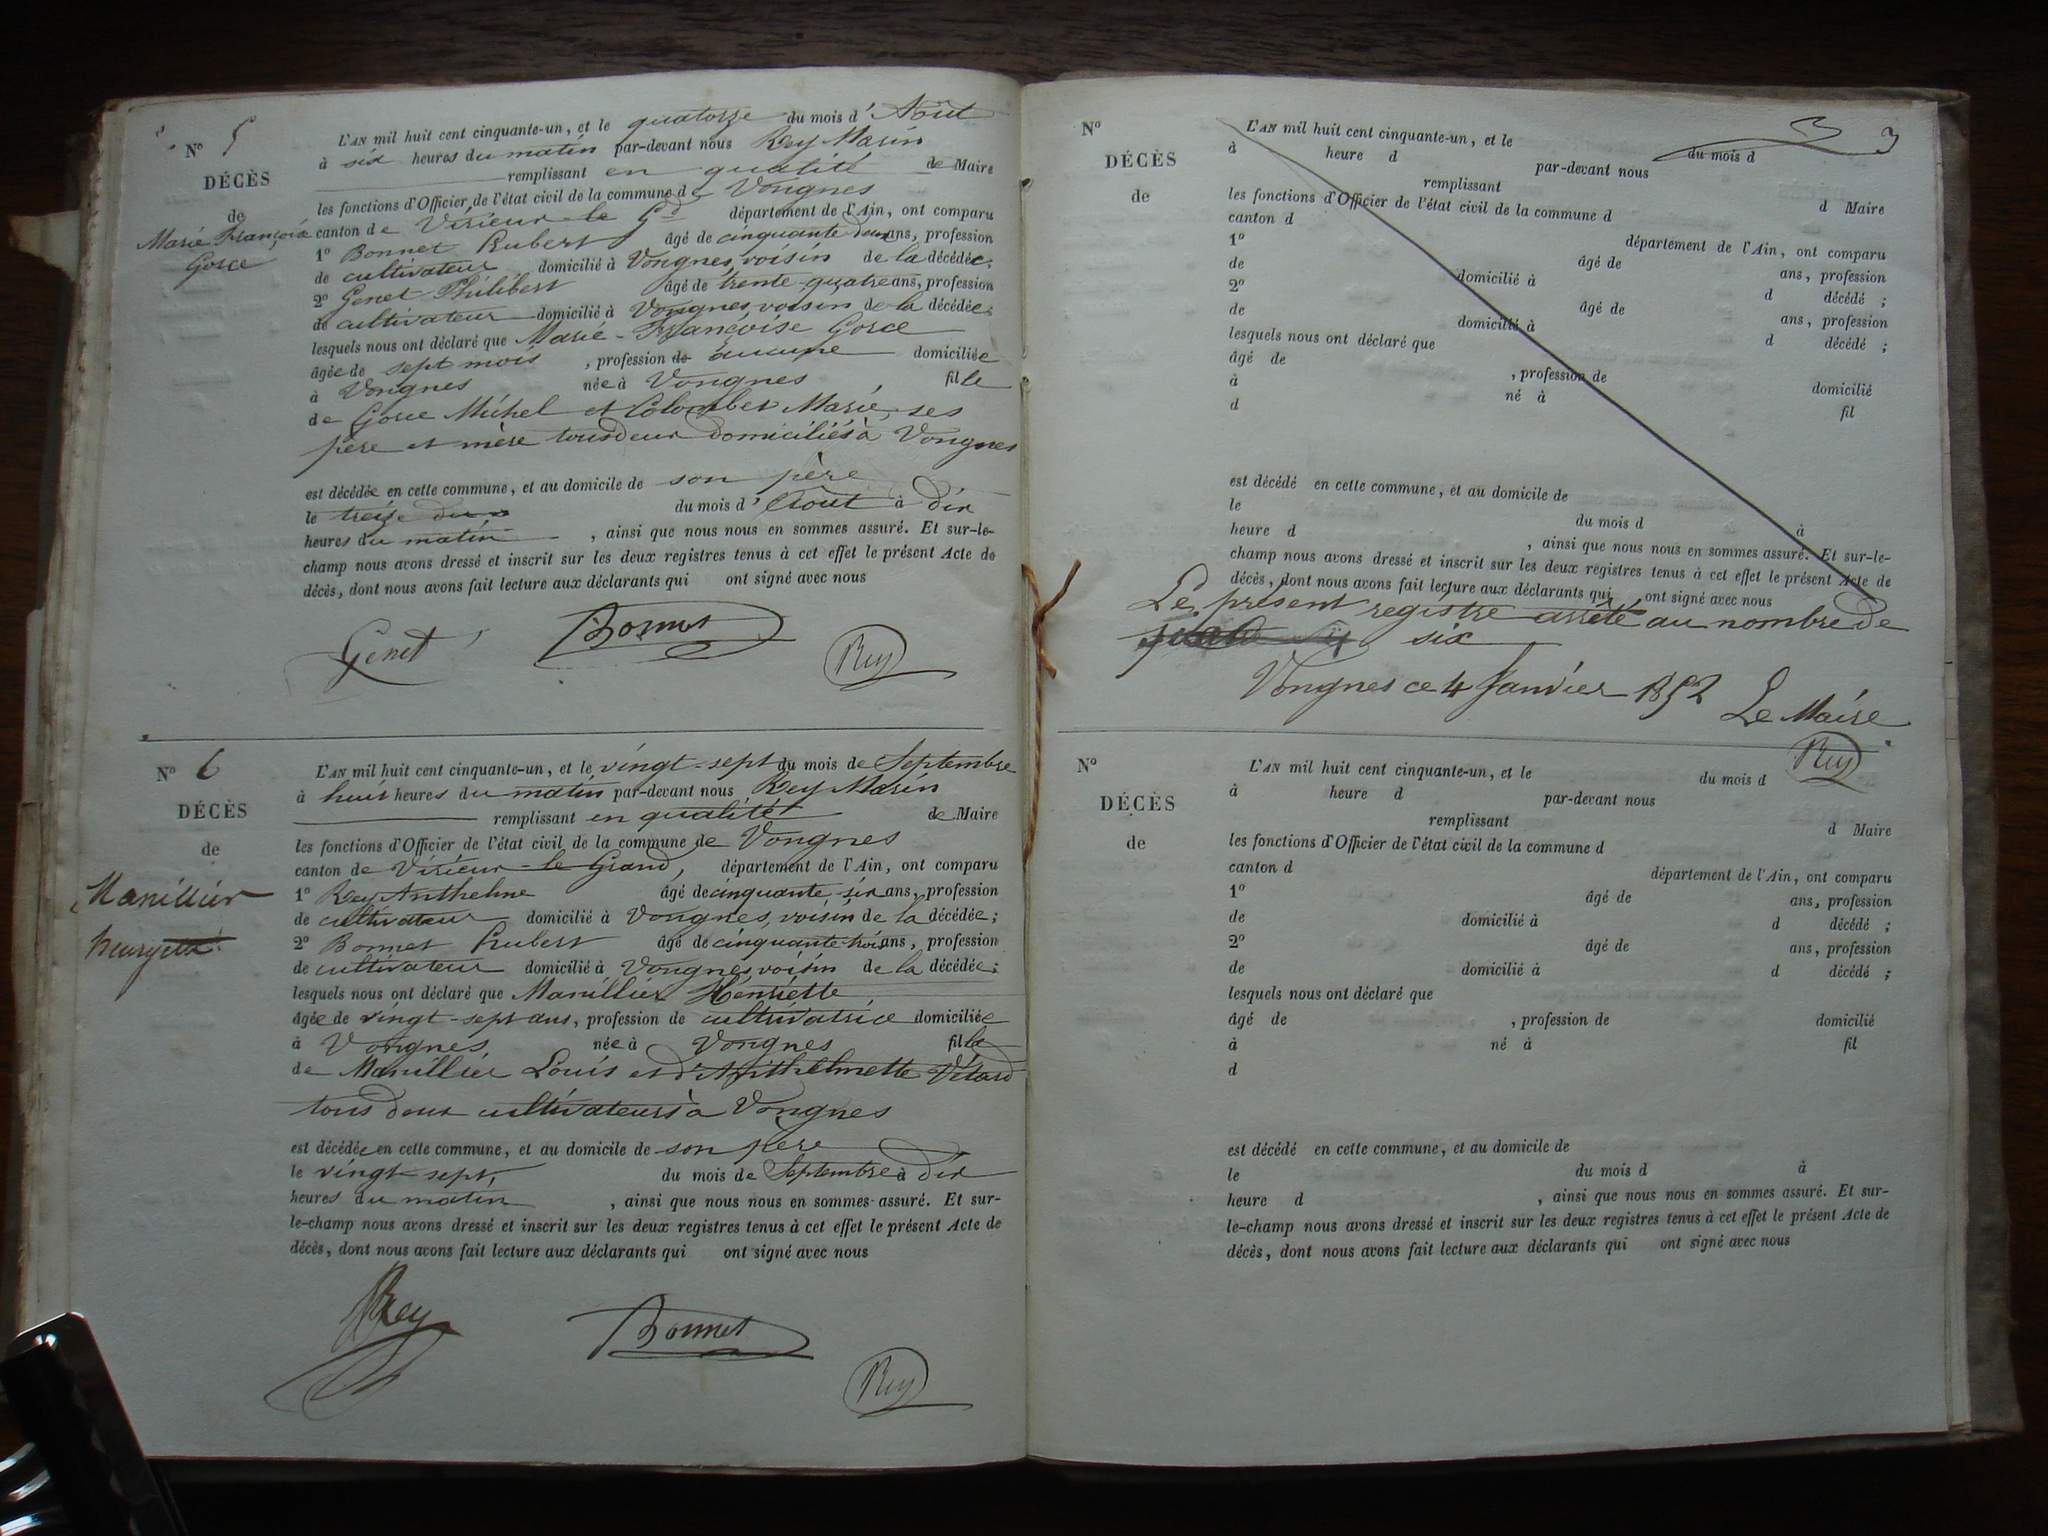 N° 5
DÉCÈS
de
Marie Françoise
Gorce
L'AN mil huit cent cinquante-un, et le quatorze du mois d'Août
à six heures du matin par-devant nous Rey Marin
remplissant en qualité de Maire
les fonctions d'Officier de l'état civil de la commune de Vongnes
canton de Virieux-le Gd département de l'Ain, ont comparu
1° Bonnet Hubert âgé de cinquante deux ans, profession
de cultivateur domicilié à Vongnes, voisin de la décédée;
2° Genet Philibert âgé de trente-quatre ans, profession
de cultivateur domicilié à Vongnes, voisin de la décédée;
lesquels nous ont déclaré que Marie-Françoise Gorce
âgée de sept mois, profession de aucune domiciliée
à Vongnes née à Vongnes fille
de Gorce Michel et Colomber Marie, ses
père et mère tous deux domiciliés à Vongnes
est décédée en cette commune, et au domicile de son père
le treize du mois d'Août à dix
heures du matin, ainsi que nous nous en sommes assuré. Et sur-le-
champ nous avons dressé et inscrit sur les deux registres tenus à cet effet le présent Acte de
décès, dont nous avons fait lecture aux déclarants qui ont signé avec nous
Genet Bonnet Rey
N° 6
DÉCÈS
de
Manillier
L'AN mil huit cent cinquante-un, et le vingt-sept du mois de Septembre
à huit heures du matin par-devant nous Rey Marin
remplissant en qualité de Maire
les fonctions d'Officier de l'état civil de la commune de Vongnes
canton de Virieux-le Grand, département de l'Ain, ont comparu
1° Rey Anthelme âgé de cinquante-six ans, profession
de cultivateur domicilié à Vongnes, voisin de la décédée;
2° Bonnet Hubert âgé de cinquante-trois ans, profession
de cultivateur domicilié à Vongnes, voisin de la décédée;
lesquels nous ont déclaré que Manillier Henriette
âgée de vingt-sept ans, profession de cultivatrice domiciliée
à Vongnes née à Vongnes fille
de Manillier Louis et d'Anthelmette Vétard
tous deux cultivateurs à Vongnes
est décédée en cette commune, et au domicile de son père
le vingt-sept, du mois de Septembre à dix
heures du matin, ainsi que nous nous en sommes assuré. Et sur-
le-champ nous avons dressé et inscrit sur les deux registres tenus à cet effet le présent Acte de
décès, dont nous avons fait lecture aux déclarants qui ont signé avec nous
Rey Bonnet Rey
3 3
N°
DÉCÈS
de
L'AN mil huit cent cinquante-un, et le du mois d
à heure d par-devant nous
remplissant d Maire
les fonctions d'Officier de l'état civil de la commune d
canton d département de l'Ain, ont comparu
1° âgé de ans, profession
de domicilié à d décédé ;
2° âgé de ans, profession
de domicilié à d décédé ;
lesquels nous ont déclaré que
âgé de , profession de domicilié
à né à fil
d
est décédé en cette commune, et au domicile de
le du mois d à
heure d , ainsi que nous nous en sommes assuré. Et sur-le-
champ nous avons dressé et inscrit sur les deux registres tenus à cet effet le présent Acte de
décès, dont nous avons fait lecture aux déclarants qui ont signé avec nous
Le présent registre arrêté au nombre de
six
Vongnes ce 4 Janvier 1852
Le Maire
Rey
N°
DÉCÈS
de
L'AN mil huit cent cinquante-un, et le du mois d
à heure d par-devant nous
remplissant d Maire
les fonctions d'Officier de l'état civil de la commune d
canton d département de l'Ain, ont comparu
1° âgé de ans, profession
de domicilié à d décédé ;
2° âgé de ans, profession
de domicilié à d décédé ;
lesquels nous ont déclaré que
âgé de , profession de domicilié
à né à fil
d
est décédé en cette commune, et au domicile de
le du mois d à
heure d , ainsi que nous nous en sommes assuré. Et sur-
le-champ nous avons dressé et inscrit sur les deux registres tenus à cet effet le présent Acte de
décès, dont nous avons fait lecture aux déclarants qui ont signé avec nous